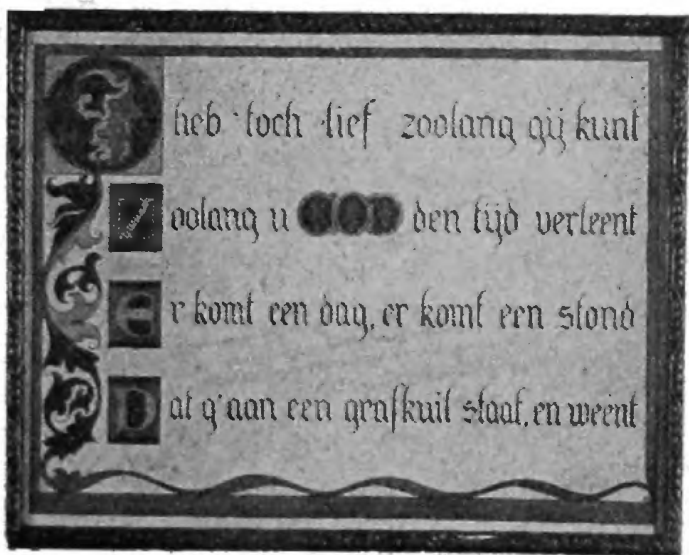 O heb toch lief zoolang gij kunt
Zoolang u GOD den tijd verleent
Er komt een dag, er komt een stond
Dat g'aan een grafkuil staat, en weent